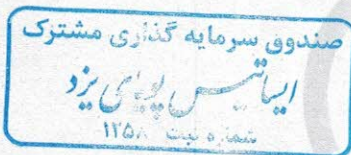 صندوق سرمایه گذاری مشترک
ایساتیس پویای یزد
شماره ثبت ۱۲۵۸